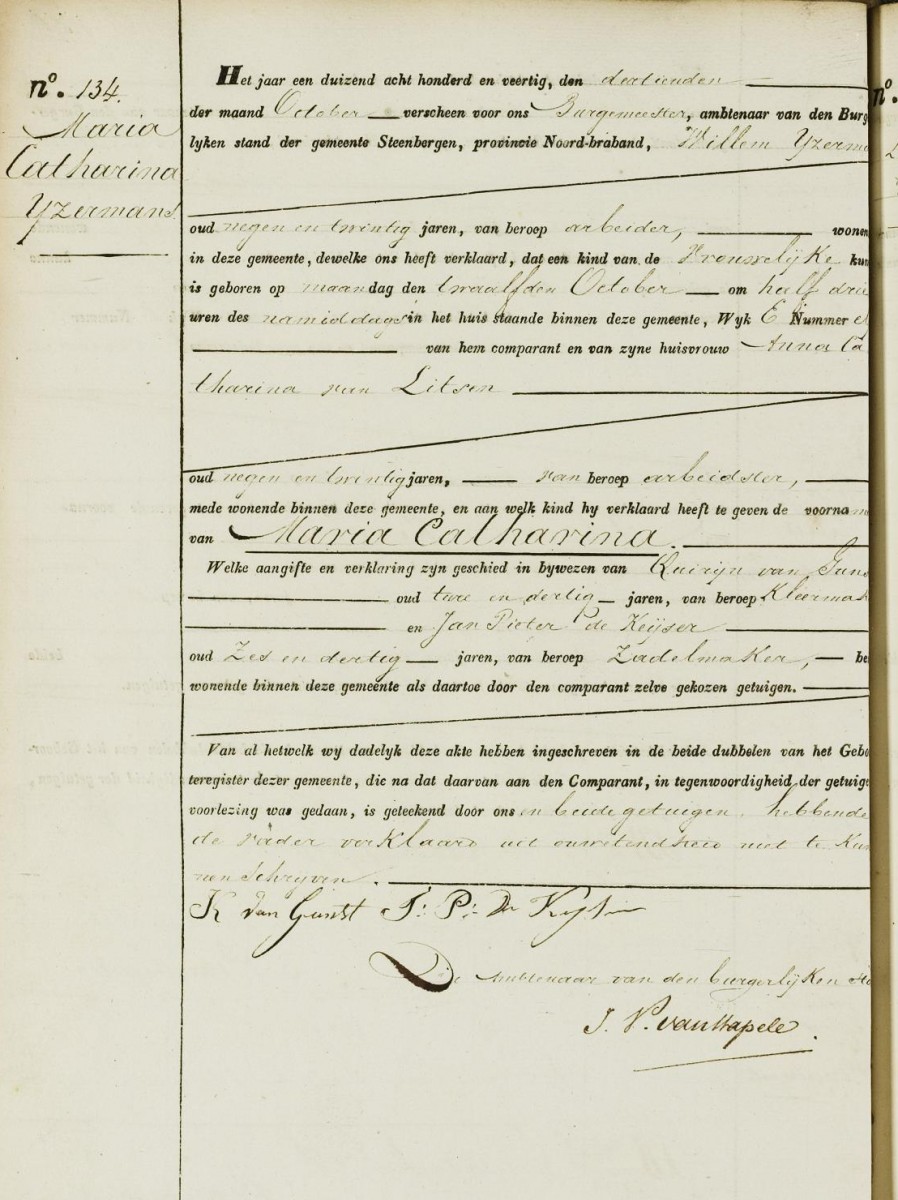 nº. 134.
Maria
Catharina
Yzermans
Het jaar een duizend acht honderd en veertig, den dertienden
der maand October verscheen voor ons Burgemeester, ambtenaar van den Burg
lyken stand der gemeente Steenbergen, provincie Noord-braband, Willem Yzerma
oud negen en twintig jaren, van beroep arbeider, wonen
in deze gemeente, dewelke ons heeft verklaard, dat een kind van de Vrouwelyke kun
is geboren op maandag den twaalfden October om half drie
uren des namiddags in het huis staande binnen deze gemeente, Wyk E Nummer
van hem comparant en van zyne huisvrouw Anna Ca
tharina van Litsen
oud negen en twintig jaren, van beroep arbeidster,
mede wonende binnen deze gemeente, en aan welk kind hy verklaard heeft te geven de voorna
van Maria Catharina.
Welke aangifte en verklaring zyn geschied in bywezen van Quirijn van Guns
oud twee en dertig jaren, van beroep Kleermak
en Jan Pieter de Keijser
oud Zes en dertig jaren, van beroep Zadelmaker, be
wonende binnen deze gemeente als daartoe door den comparant zelve gekozen getuigen.
Van al hetwelk wy dadelyk deze akte hebben ingeschreven in de beide dubbelen van het Gebo
teregister dezer gemeente, die na dat daarvan aan den Comparant, in tegenwoordigheid der getuige
voorlezing was gedaan, is geteekend door ons en beide getuigen. hebbende
de vader verklaard uit onwetendheid niet te kun
nen Schryven.
K van Gunst J: P: De Keyser
De Ambtenaar van den burgerlijken sta
J. V. van Kapele.